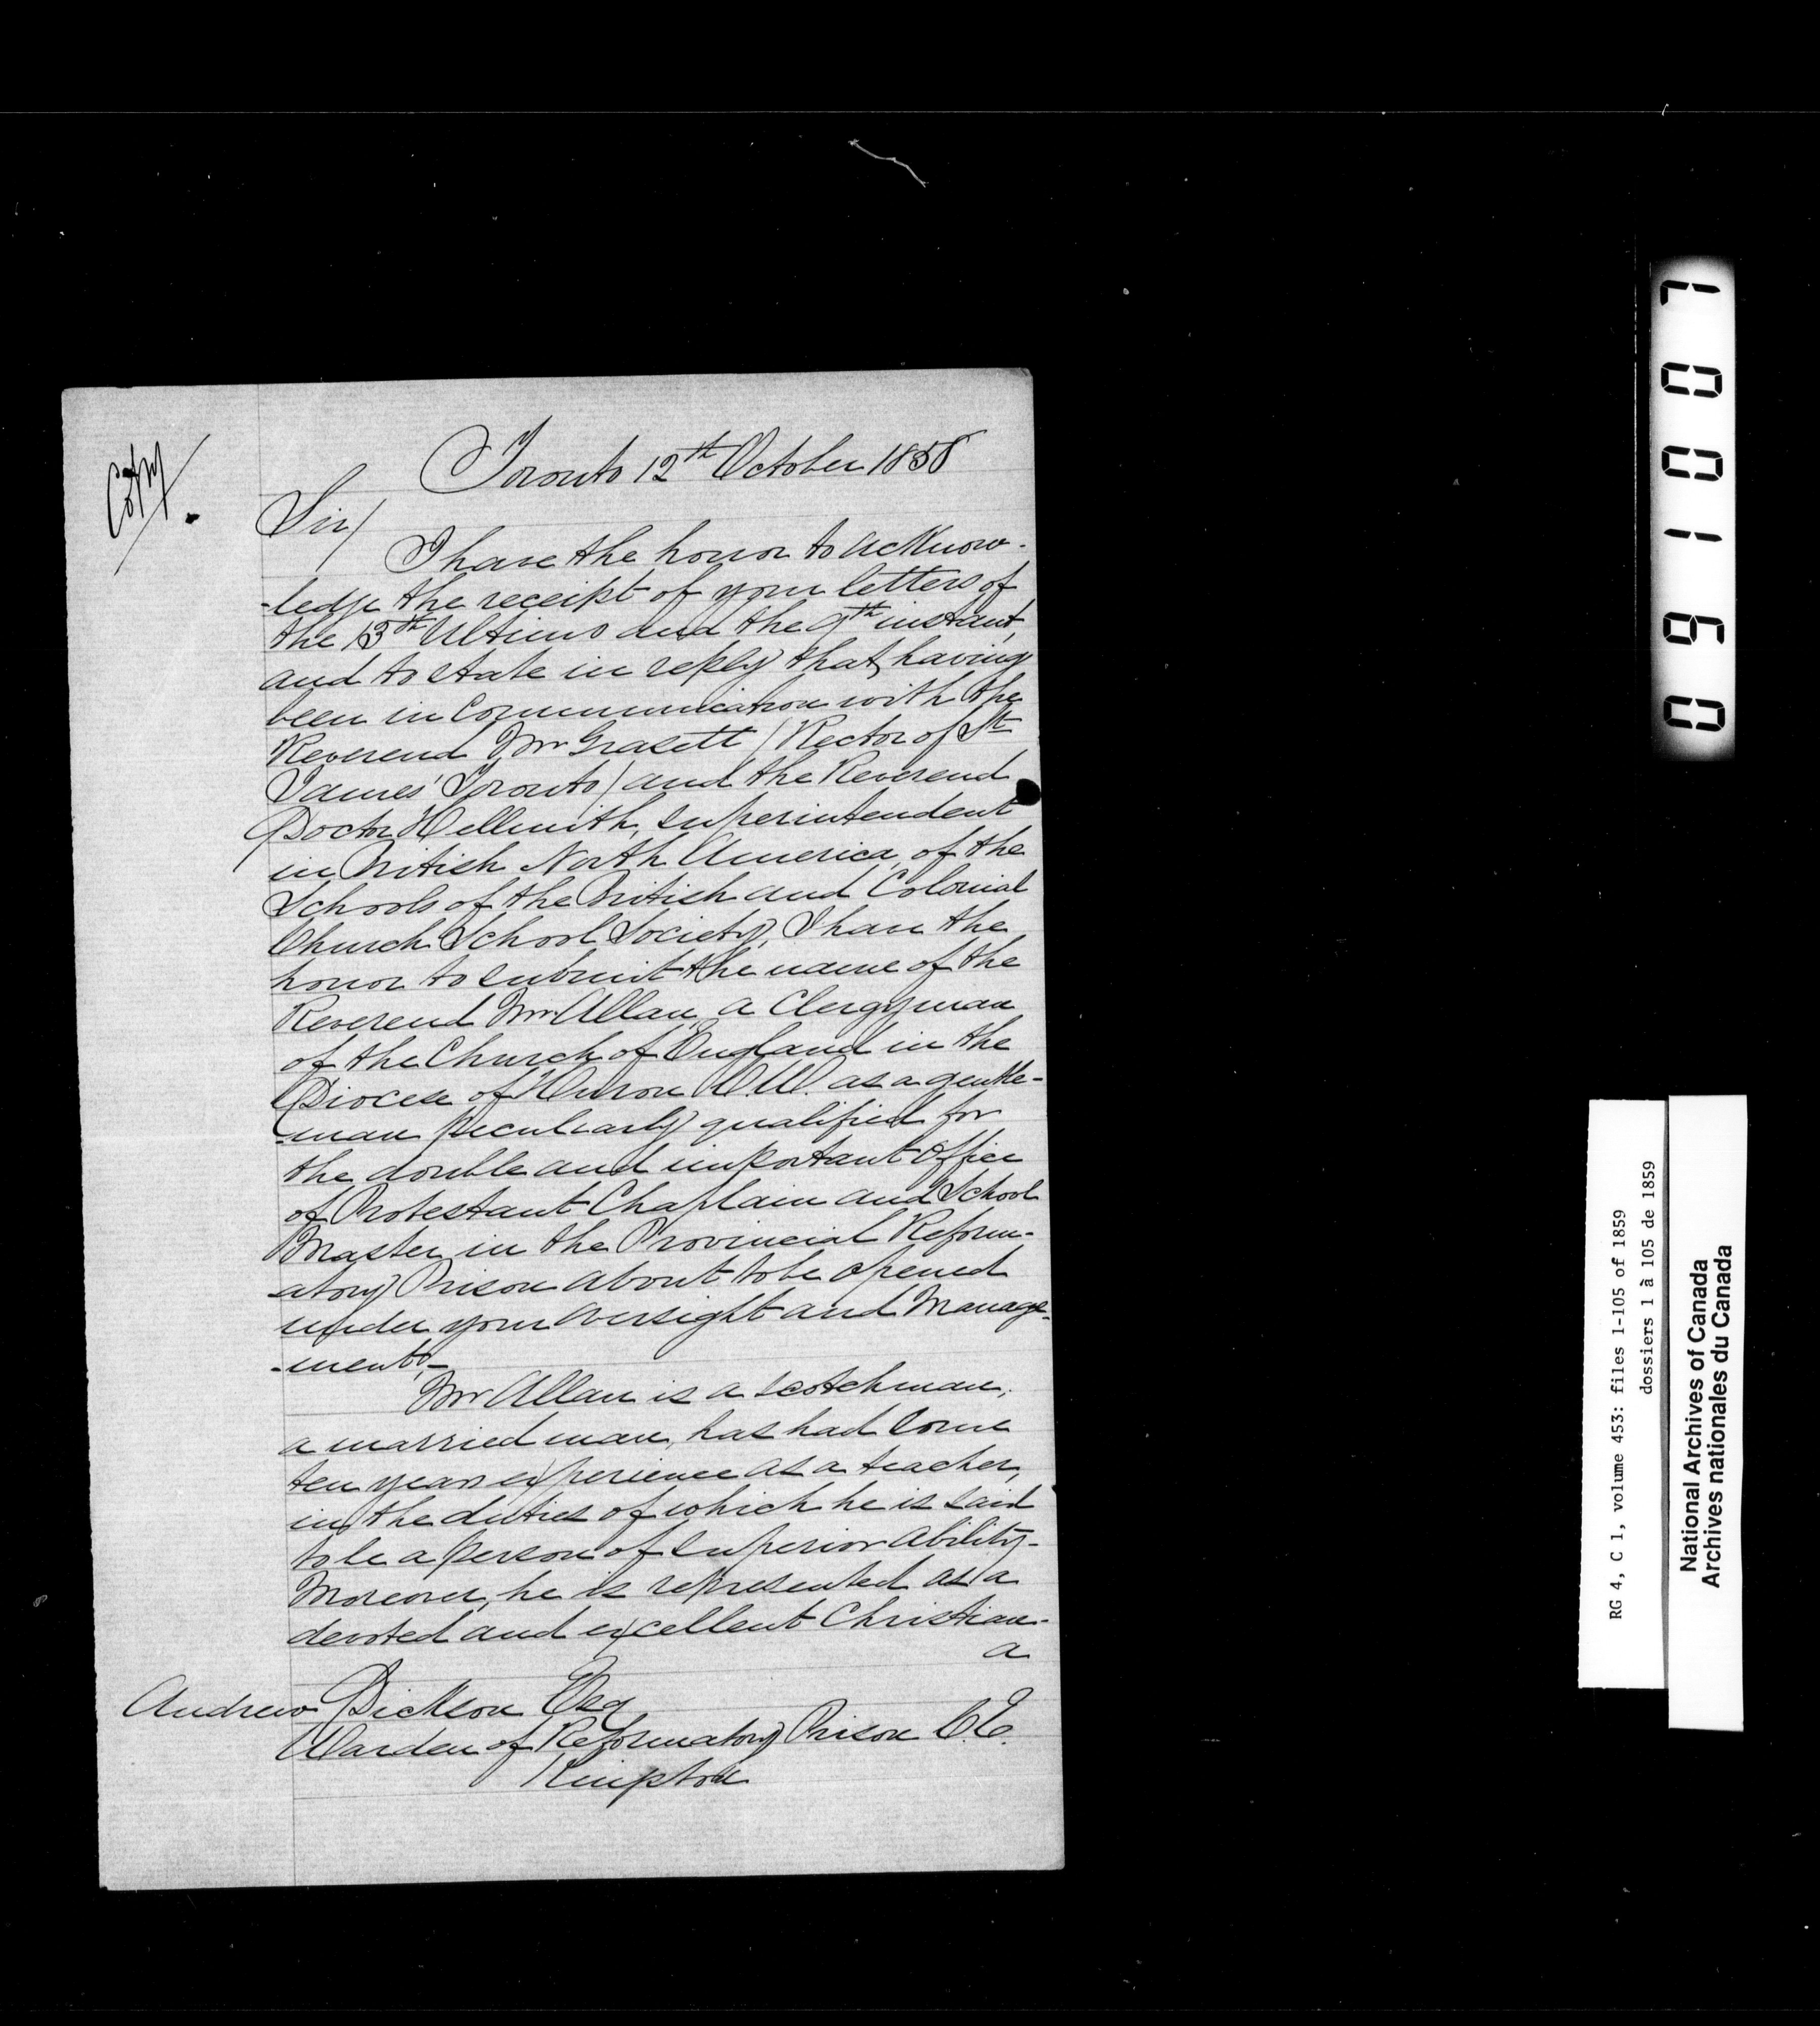 Copy.
Toronto 12th October 1858
Sir/
I have the honor to acknow-
-ledge the receipt of your letters of
the 13th Ultimo and the 9th instant,
and to state in reply that, having
been in Communication with the
Reverend Mr Grasett (Rector of St
James' Toronto) and the Reverend
Doctor Hellmuth, superintendent
in British North America, of the
Schools of the British and Colonial
Church School Society, I have the
honor to submit the name of the
Reverend Mr. Allan, a Clergyman
of the Church of England in the
Diocese of Huron C.W. as a gentle-
-man peculiarly qualified for
the double and important office
of Protestant Chaplain and School
Master in the Provincial Reform-
-atory Prison about to be opened
under your oversight and Manage-
-ment.-
Mr Allan is a Scotchman,
a married man, has had some
ten years experience as a teacher,
in the duties of which he is said
to be a person of superior ability-
Moreover, he is represented as a
devoted and excellent Christian-
a
Andrew Dickson Esq
Warden of Reformatory Prison C.E.
Kingston
091007
RG 4, C 1, volume 453: files 1-105 of 1859
dossiers 1 à 105 de 1859
National Archives of Canada
Archives nationales du Canada